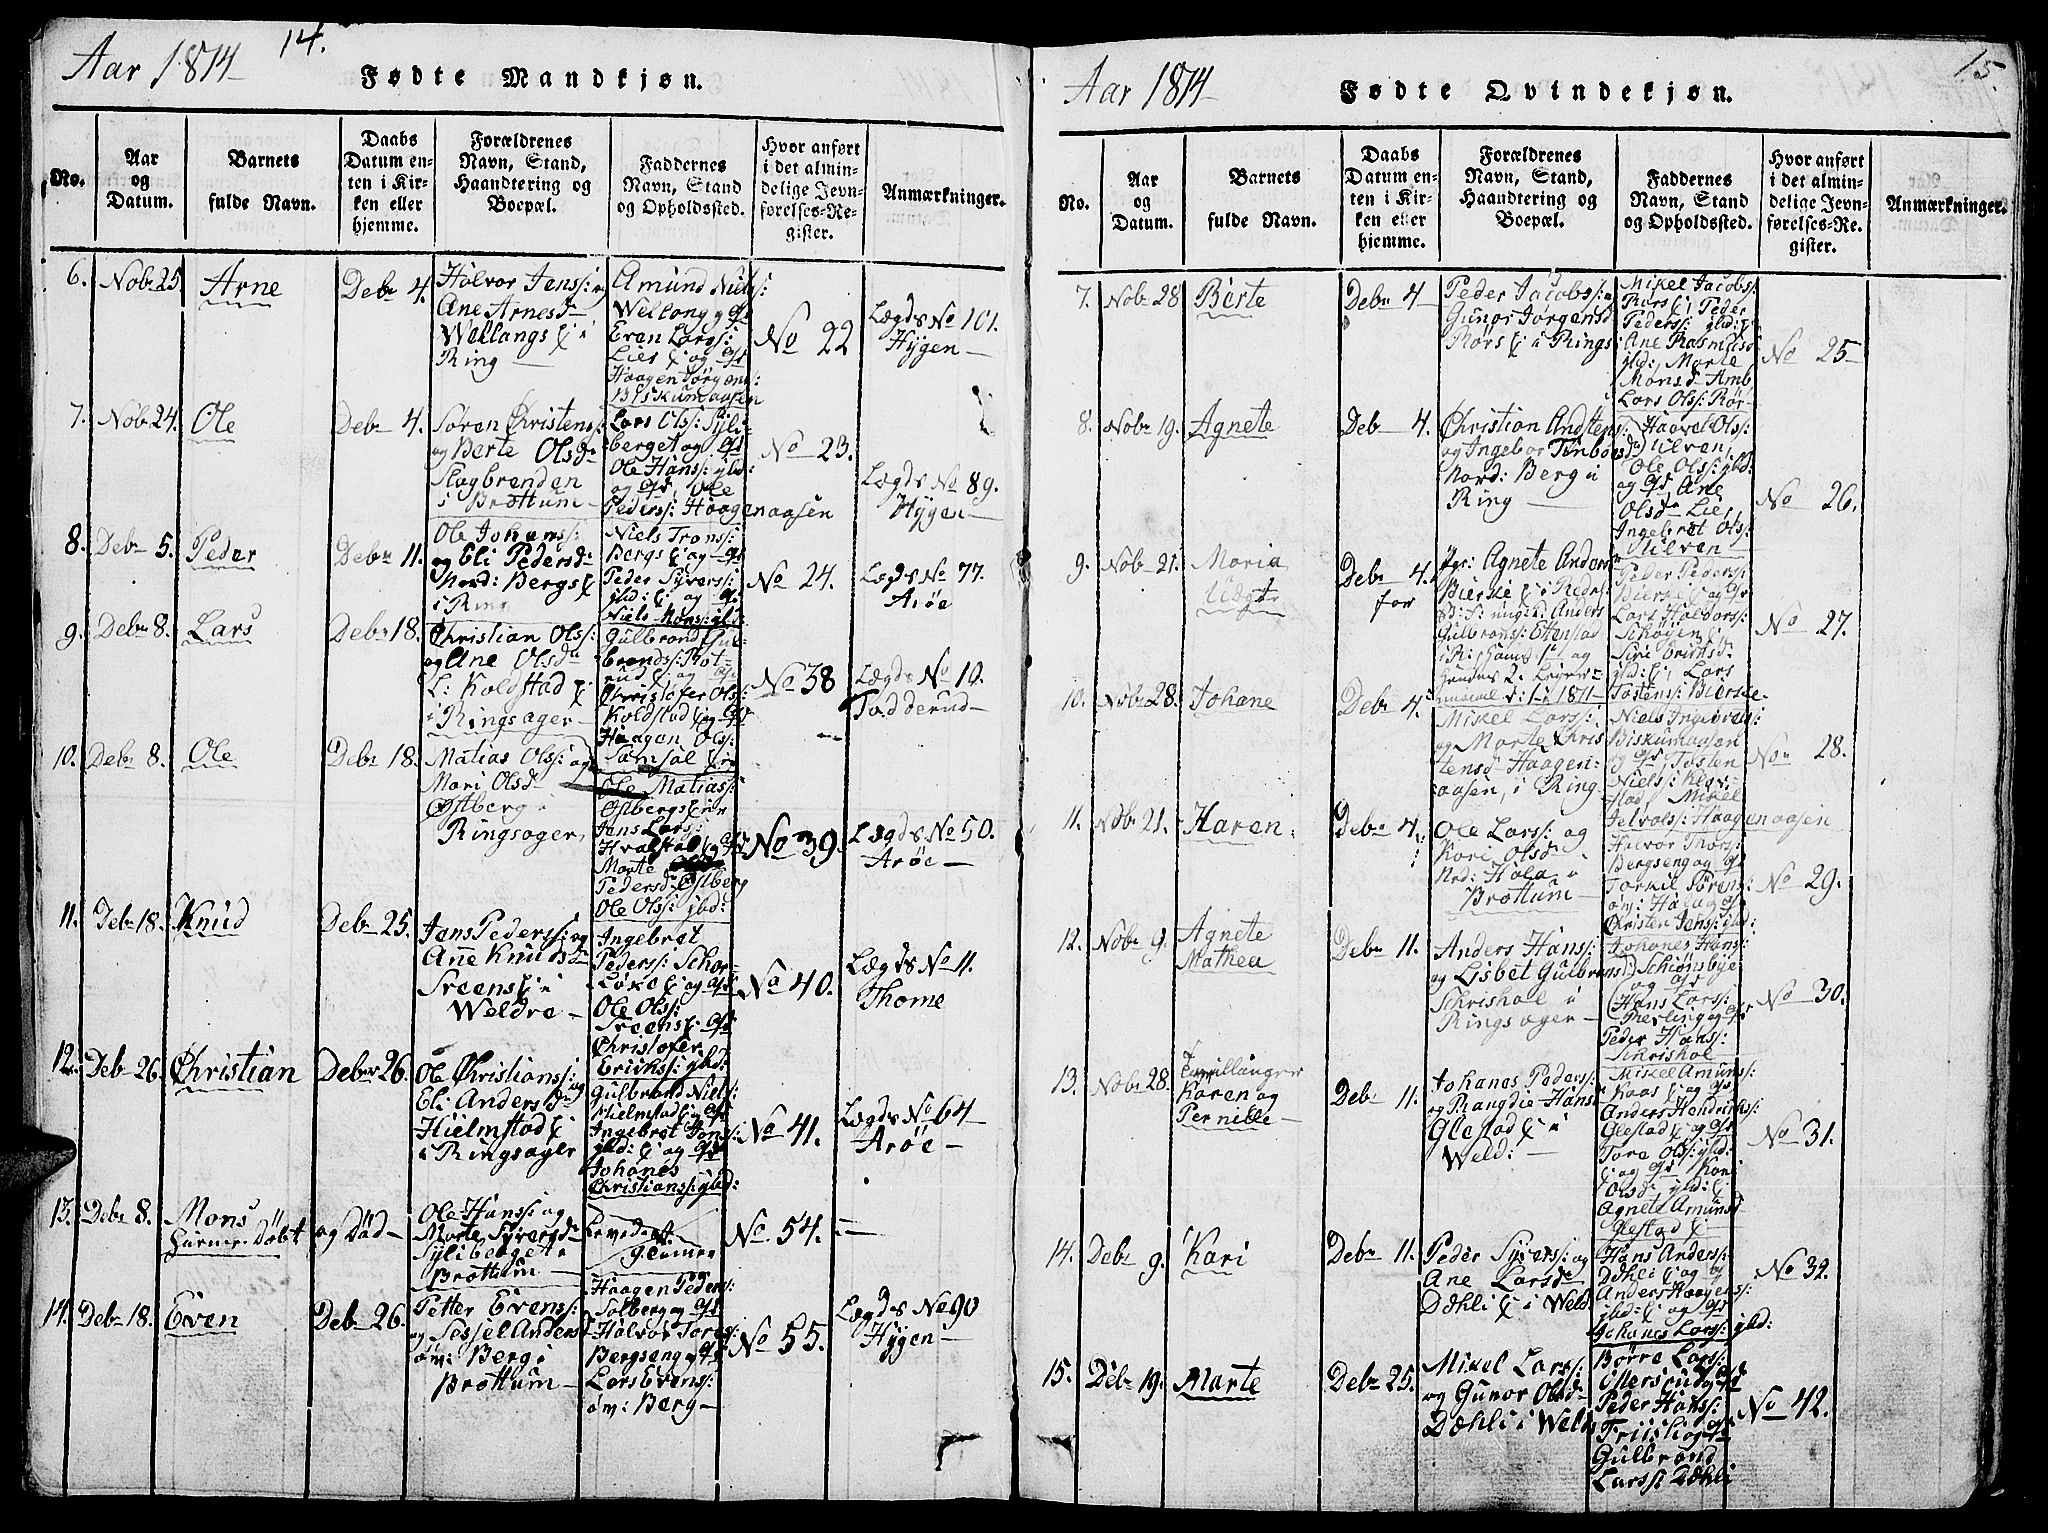 Aar 1814
14.
Fødte Mandkjøn.
No.
Aar
og
Datum.
Barnets
fulde Navn.
Daabs
Datum en-
ten i Kir-
ken eller
hjemme.
Forældrenes
Navn, Stand,
Haandtering og
Boepæl.
Faddernes
Navn, Stand
og Opholdssted.
Hvor anført
i det almin-
delige Jevn-
førelses-Re-
gister.
Anmærkninger.
6.
Nobr 25
Arne
Debr 4.
Halvor Jens: og
Ane Arnesd
Wellangs i
Ring
Amund Niels:
Wellang og
Even Lars:
Lier og
Haagen Jørgens:
Biskumaasen
No 22
Lægds No 101.
Hygen
7.
Nobr 24.
Ole
Debr 4.
Søren Christens:
og Berte Olsd
Slagbrenden
i Brøttum
Lars Ols: Syli-
berget og
Ole Hans: gbd:
og Ole
Peders: Haagenaasen
No 23.
Lægds No 89.
Hygen
8.
Debr 5.
Peder
Debr 11.
Ole Johans:
og Eli Pedersd:
Nord: Bergs
i Ring
Niels Trons:
Bergs og
Peder Syvers:
gbd: og
Niels Mons: gbd.
No 24.
Lægds No 77.
Arøe
9.
Debr 8.
Lars
Debr 18.
Christian Ols:
og Ane Olsd
L: Koldstad
i Ringsager
Gulbrand Gul-
brands: Rot-
rud og
Christofer Ols:
Koldstad og
Haagen Ols:
Samsal
No 38
Lægds No 10.
Fodderud
10.
Debr 8.
Ole
Debr 18.
Matias Ols: og
Mari Olsd
Østberg i
Ringsager,
Ole Matias:
Østbergs
Jens Lars:
Hvalstad og
Marte
Pedersd: Østberg
Ole Ols: gbd:
No 39.
Lægds No 50.
Arøe
11.
Debr 18.
Knud
Debr 25.
Jens Peders: og
Ane Knudsd
Sveens i
Weldre
Ingebret
Peders: Schar-
Løke og
Ole Ols:
Sveens:
Christofer
Eriks: gbd:
No 40.
Lægds No 11.
Thome
12.
Debr 26.
Christian
Debr 26.
Ole Christians: og
Eli Andersd
Hielmstad
i Ringsager
Gulbrand Niels:
Hielmstad
Ingebret Jens:
gbd: og
Johanes
Christians: gbd:
No 41.
Lægds No 64
Arøe
13.
Debr 8.
Mons
Døbt
og Død
Ole Hans: og
Marte Syversd
Syliberget i
Brøttum
No 54.
14.
Debr 18.
Even
Debr 26.
Petter Evens:
og Sessel Anders
øm: Berg i
Brøttum
Haagen Peders:
Solberg og
Halvor Tores:
Bergseng og
Lars Evens:
øm: Berg
No 55.
Lægds No 90
Hygen
Aar 1814
15.
Fødte Qvindekjøn.
No.
Aar
og
Datum.
Barnets
fulde Navn.
Daabs
Datum en-
ten i Kir-
ken eller
hjemme.
Forældrenes
Navn, Stand,
Haandtering og
Boepæl.
Faddernes
Navn, Stand
og Opholdssted.
Hvor anført
i det almin-
delige Jevn-
førelses-Re-
gister.
Anmærkninger.
7.
Nobr 28
Berte
Debr 4
Peder Jacobs: og
Gunor Jørgensd
Rørs i Rings:
Mikel Jacobs:
Rørs Peder
Peders: gbd:
Ane Rasmusd
gbd: Marte
Monsd Amb
Lars Ols: Rør
No 25
8.
Nobr 19.
Agnete
Debr 4.
Christian Andstens:
og Ingebor
Nord: Berg i
Ring
Haavel Ols:
Ulven,
Ole Ols: gbd:
og Ane
Olsd Lie,
Ingebret Ols:
Ulven
No 26.
9.
Nobr 21.
Maria
Uægt
Debr 4.
før
Pge: Agnete Anders
Bierke i
ungk. Anders
Gulbrans:
og
1811
Peder Peders:
Bierke og
Lars Halvors:
Schøyen
Siri
gbd: Lars
Tostens: Bierke
No 27.
10.
Nobr 28.
Johane
Debr 4.
Mikel Lars:
og Marte Chris
tensd Haagen-
aasen, i Ring
Niels Ingebrets:
Biskumaasen
og Tosten
Niels:
Mikel
Haagenaasen
No 28.
11.
Nobr 21.
Karen
Debr 4
Ole Lars: og
Kari Olsd
Nrd: Hola i
Brøttum
Halvor Thors:
Bergseng og
Torkil Sørens:
øm: Hola og
Christen Jens: gbd:
No 29.
12.
Nobr 9.
Agnete
Mathea
Debr 11.
Anders Hans:
og Lisbet Gulbrans
Schrishol i
Ringsager
Johanes Hans:
Schiønsbye
og
Hans Lars:
og
Peder Hans:
Schrishol
No 30.
13.
Nobr 28.
Tvillinger
Karen og
Pernille
Debr 11.
Johanes Peders:
og Rangdie Hans
Glestad i
Weld:
Mikel Amunds:
Kaas og
Anders Hendriks:
Glestad og
Tore Ols: gbd
og Kari
Olsd gbd:
Agnete Amunsd
Glestad
No 31.
14.
Debr 9.
Kari
Debr 11.
Peder Syvers: og
Ane Larsd
Dæhli i Weld
Hans Anders:
Dæhli og
Anders Haagens:
gbd: og
Johanes Lars: gbd:
No 32.
15.
Debr 19.
Marte
Debr 25.
Mikel Lars:
og Gunor Olsd
Dæhli i Weld
Børre Lars:
og
Peder Hans:
Friisli og
Gulbrand
Lars: Dæhli
No 42.